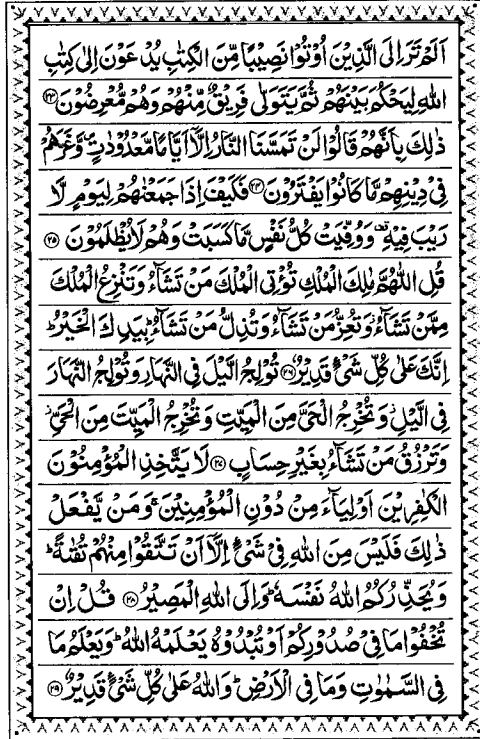 اَلَمْ تَرَ اِلَى الَّذِيْنَ اُوْتُوْا نَصِيْبًا مِّنَ الْكِتٰبِ يُدْعَوْنَ اِلٰى كِتٰبِ
اللّٰهِ لِيَحْكُمَ بَيْنَهُمْ ثُمَّ يَتَوَلّٰى فَرِيْقٌ مِّنْهُمْ وَهُمْ مُّعْرِضُوْنَ ﴿۲۳﴾
ذٰلِكَ بِاَنَّهُمْ قَالُوْا لَنْ تَمَسَّنَا النَّارُ اِلَّاۤ اَيَّامًا مَّعْدُوْدٰتٍ ۪ وَّغَرَّهُمْ
فِيْ دِيْنِهِمْ مَّا كَانُوْا يَفْتَرُوْنَ ﴿۲۴﴾ فَكَيْفَ اِذَا جَمَعْنٰهُمْ لِيَوْمٍ لَّا
رَيْبَ فِيْهِ ۫ وَوُفِّيَتْ كُلُّ نَفْسٍ مَّا كَسَبَتْ وَهُمْ لَا يُظْلَمُوْنَ ﴿۲۵﴾
قُلِ اللّٰهُمَّ مٰلِكَ الْمُلْكِ تُؤْتِي الْمُلْكَ مَنْ تَشَآءُ وَتَنْزِعُ الْمُلْكَ
مِمَّنْ تَشَآءُ ؗ وَتُعِزُّ مَنْ تَشَآءُ وَتُذِلُّ مَنْ تَشَآءُ ؕ بِيَدِكَ الْخَيْرُ ؕ
اِنَّكَ عَلٰى كُلِّ شَيْءٍ قَدِيْرٌ ﴿۲۶﴾ تُوْلِجُ الَّيْلَ فِي النَّهَارِ وَتُوْلِجُ النَّهَارَ
فِي الَّيْلِ ؗ وَتُخْرِجُ الْحَيَّ مِنَ الْمَيِّتِ وَتُخْرِجُ الْمَيِّتَ مِنَ الْحَيِّ ؗ
وَتَرْزُقُ مَنْ تَشَآءُ بِغَيْرِ حِسَابٍ ﴿۲۷﴾ لَا يَتَّخِذِ الْمُؤْمِنُوْنَ
الْكٰفِرِيْنَ اَوْلِيَآءَ مِنْ دُوْنِ الْمُؤْمِنِيْنَ ۚ وَمَنْ يَّفْعَلْ
ذٰلِكَ فَلَيْسَ مِنَ اللّٰهِ فِيْ شَيْءٍ اِلَّاۤ اَنْ تَتَّقُوْا مِنْهُمْ تُقٰىةً ؕ
وَيُحَذِّرُكُمُ اللّٰهُ نَفْسَهٗ ؕ وَاِلَى اللّٰهِ الْمَصِيْرُ ﴿۲۸﴾ قُلْ اِنْ
تُخْفُوْا مَا فِيْ صُدُوْرِكُمْ اَوْ تُبْدُوْهُ يَعْلَمْهُ اللّٰهُ ؕ وَيَعْلَمُ مَا
فِي السَّمٰوٰتِ وَمَا فِي الْاَرْضِ ؕ وَاللّٰهُ عَلٰى كُلِّ شَيْءٍ قَدِيْرٌ ﴿۲۹﴾